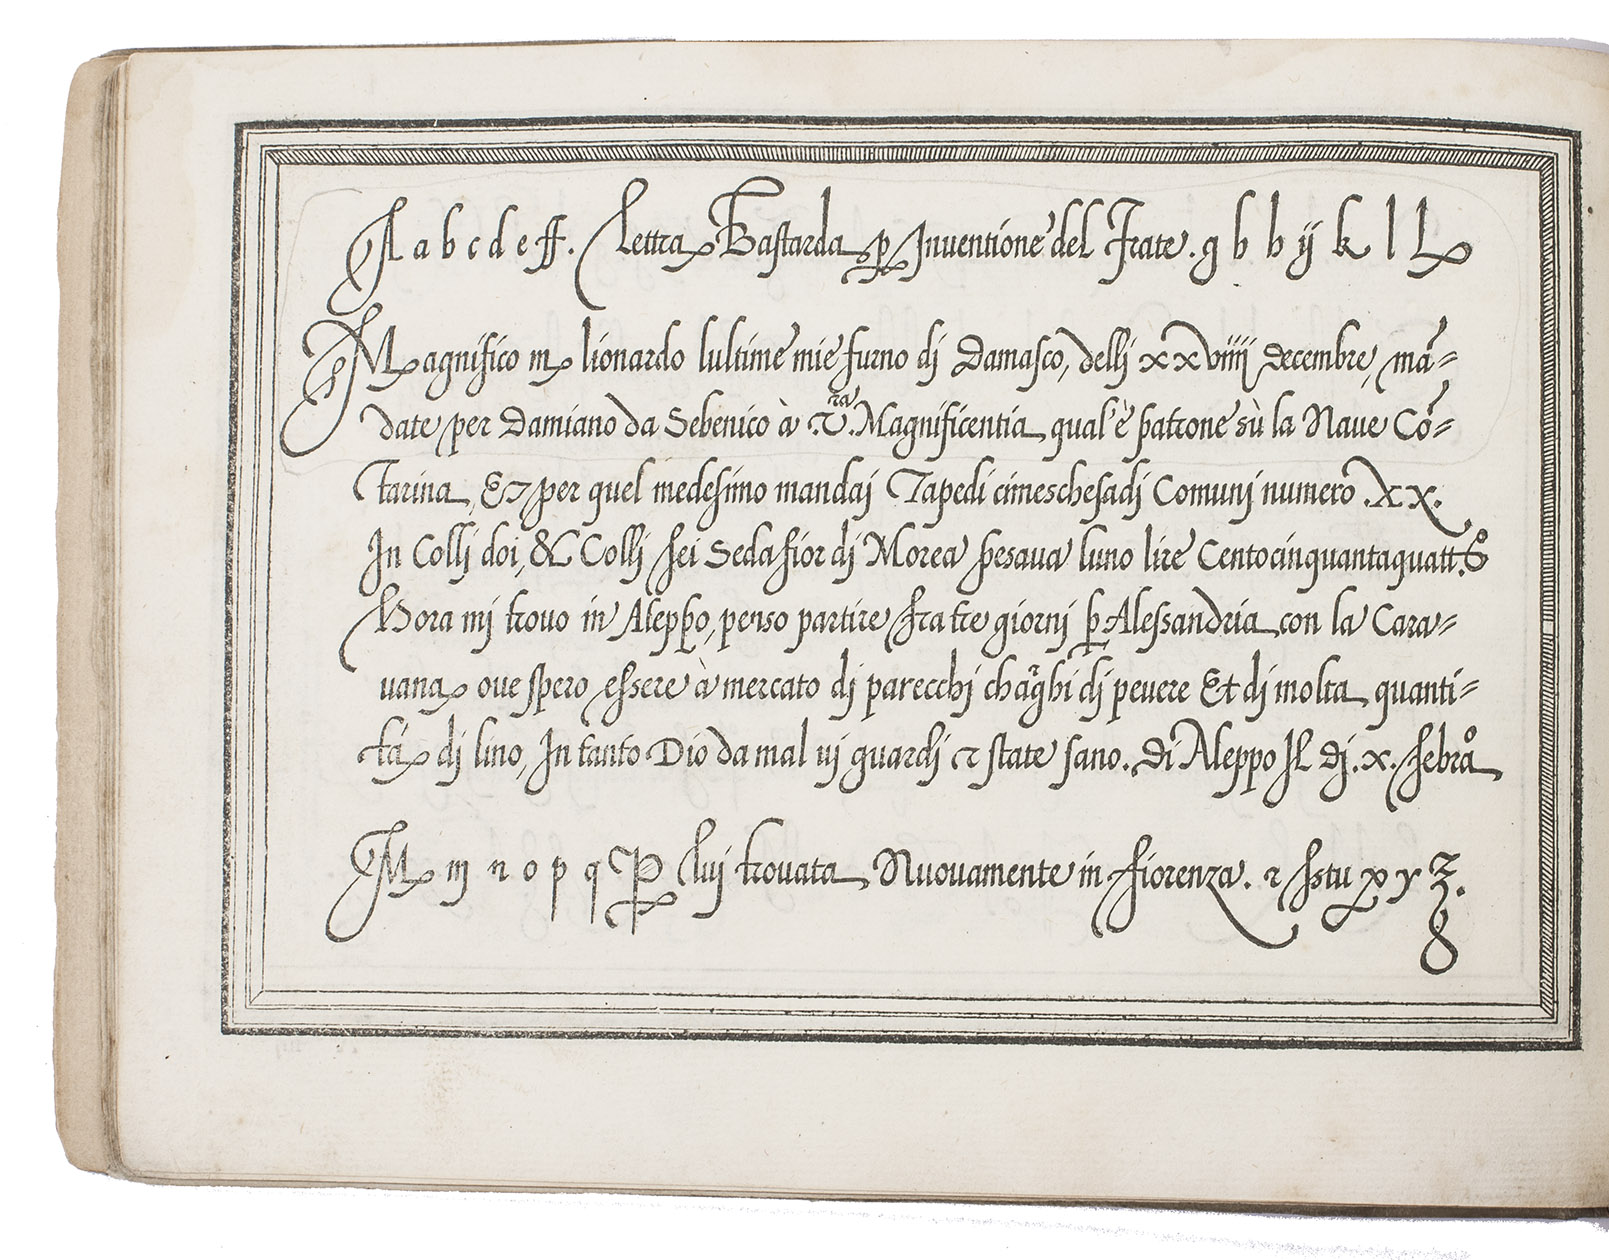 A a b c d e ff. Lettra Bastarda ꝑ Inventione del Frate. g h h ij k l L
Magnifico mͬ lionardo lultime mie furno dj Damasco, dellj xxviiij decembre, mā=
date per Damiano da Sebenico à .V.ra Magnificentia qual'è patrone sù la Naue Cō=
tarina, Et per quel medesimo mandaj Tapedi cimeschesadj Comunj numero .XX.
In Collj doi, & Collj sei Seda fior dj Morea pesaua luno lire Centocinquantaquatt.o
Hora mj trouo in Aleppo, penso partire fra tre giornj ꝑ Alessandria con la Cara=
uana oue spero essere à mercato dj parecchj dj peuere Et dj molta quanti=
tà dj lino, In tanto Dio da mal vj guardj & state sano. di Aleppo Il dj .x. febrao
M m n o p q luj trouata Nuouamente in Fiorenza. r s s t u x y z.